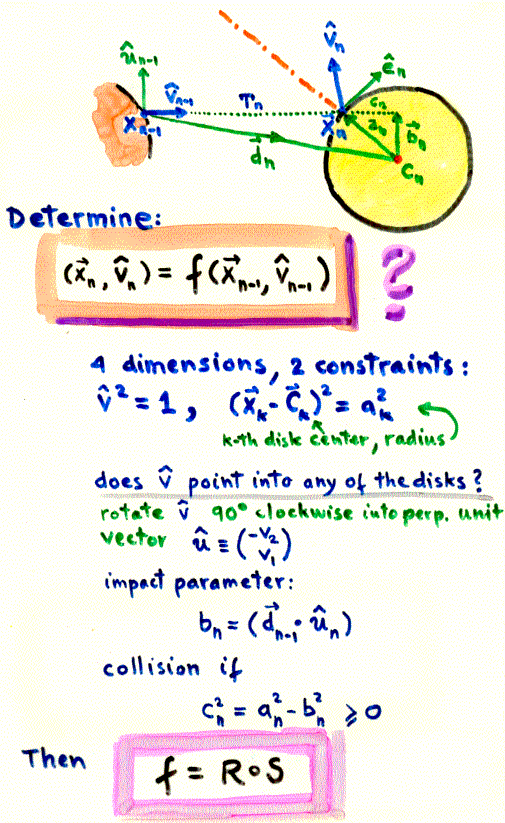 û_{n-1}
v̂_{n-1}
T_n
v̂_n
ê_n
x_{n-1}
x⃗_n
c_n
a_n
b⃗_n
d⃗_n
C_n
Determine:
(x⃗_n, v̂_n) = f(x⃗_{n-1}, v̂_{n-1})
?
4 dimensions, 2 constraints:
v̂² = 1, (x⃗_k - C⃗_k)² = a_k²
k-th disk center, radius
does v̂ point into any of the disks?
rotate v̂ 90° clockwise into perp. unit
vector û ≡ (-v₂ v₁)
impact parameter:
b_n = (d⃗_{n-1} · û_n)
collision if
c_n² = a_n² - b_n² ⩾ 0
Then
f = R∘S